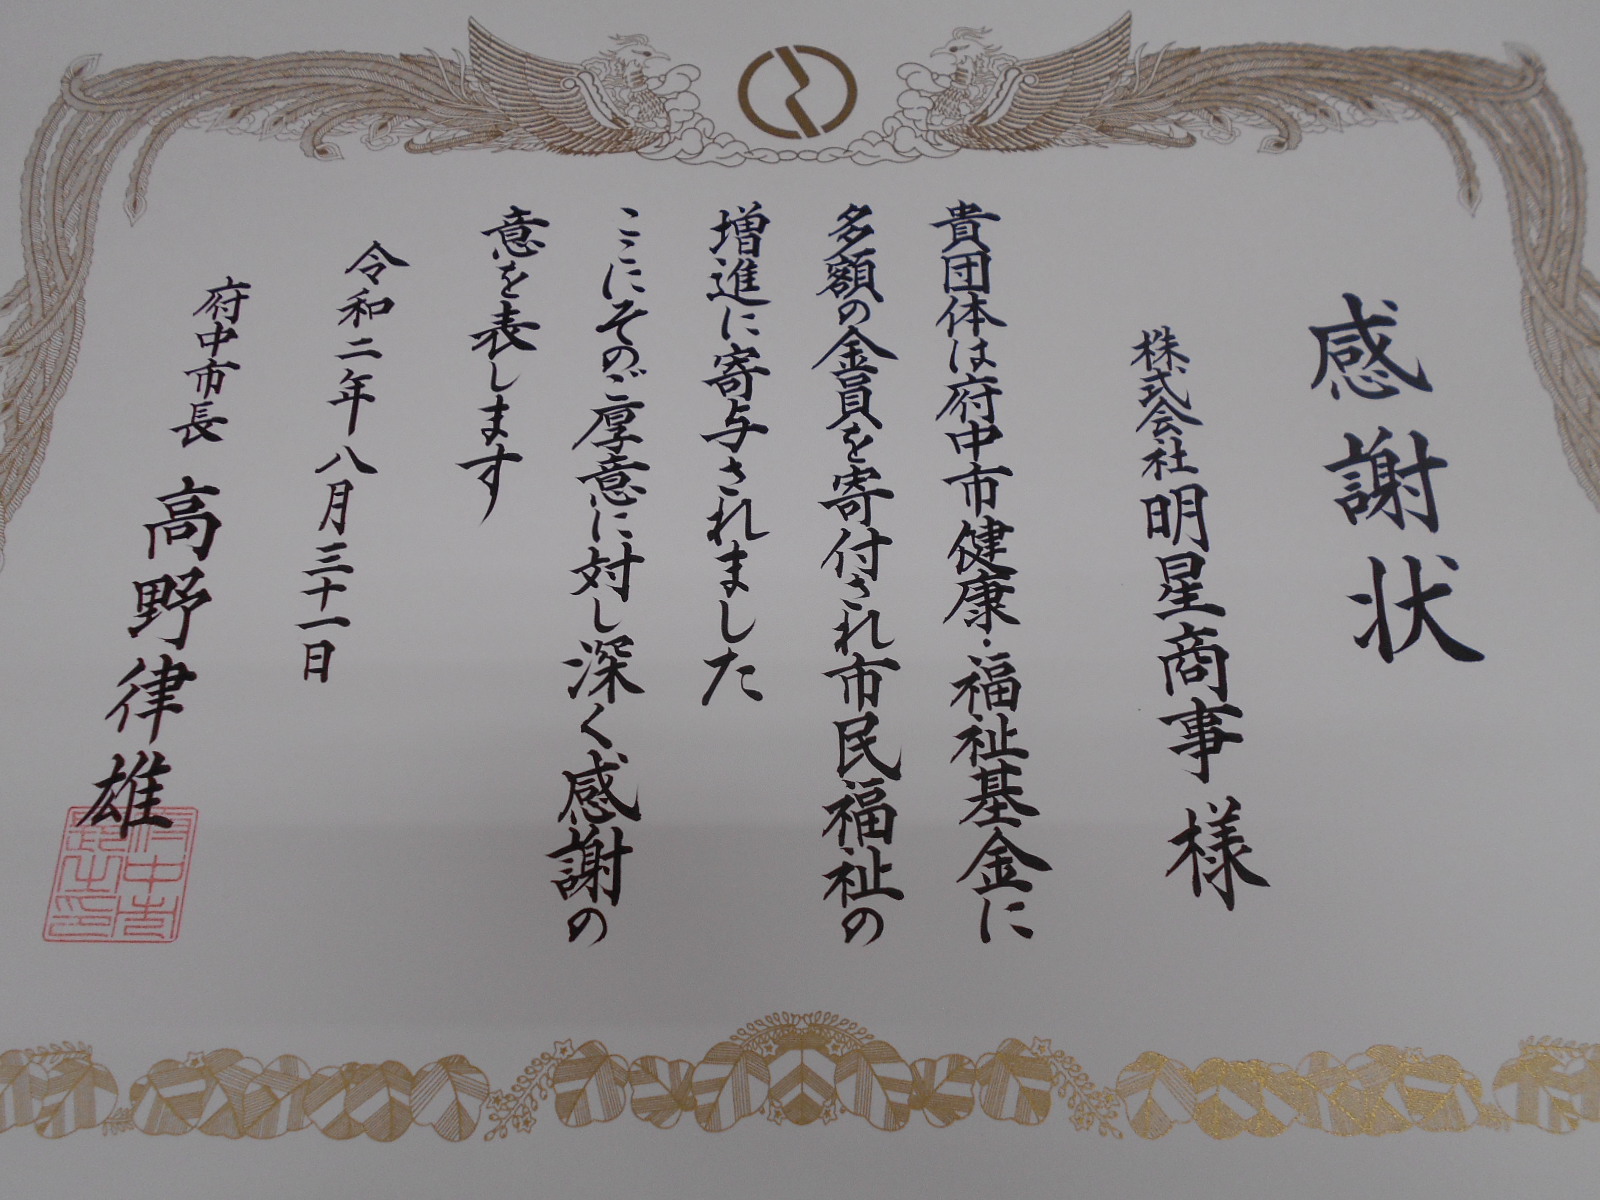 感謝状
株式会社明星商事様
貴団体は府中市健康・福祉基金に
多額の金員を寄付され市民福祉の
増進に寄与されました
ここにそのご厚意に対し深く感謝の
意を表します
令和二年八月三十一日
府中市長 高野律雄
府中市
長之印